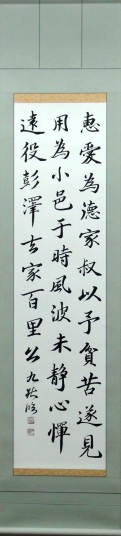 惠愛為德家叔以予貧苦遂見
用為小邑于時風波未静心憚
遠役彭澤去家百里公